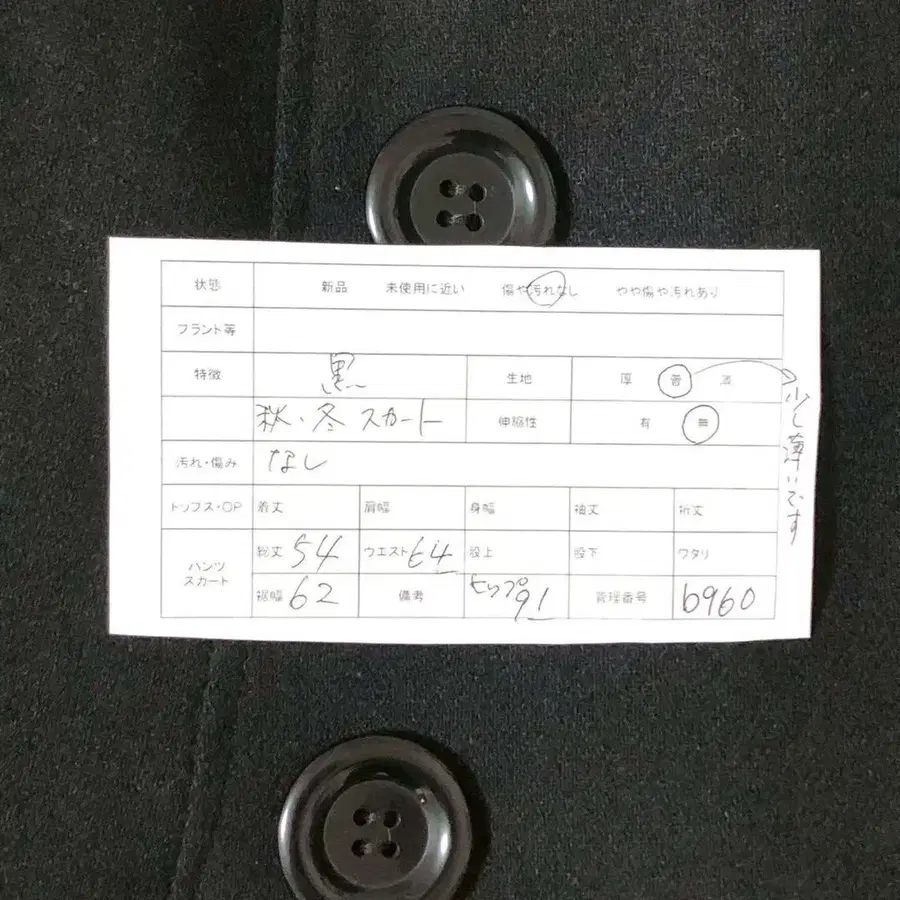 状態 新品 未使用に近い 傷や汚れなし やや傷や汚れあり
ブランド等
特徴 黒 生地 厚 普 薄
秋・冬 スカート 伸縮性 有 無
汚れ・傷み なし
トップス・OP 着丈 肩幅 身幅 袖丈 裄丈
パンツ
スカート
総丈 54 ウエスト 64 股上 股下 ワタリ
裾幅 62 備考 ヒップ 91 管理番号 6960
少し薄いです